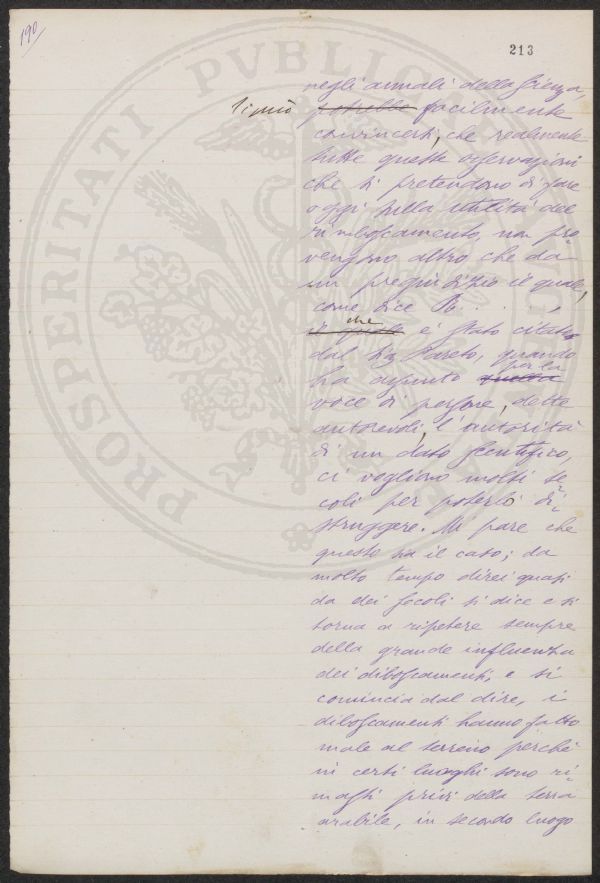 190
213
negli annali della scienza,
si può potrebbe facilmente
convincersi, che realmente
tutte queste osservazioni
che si pretendono di fare
oggi sulla utilità del
rimboscamento, non pro-
vengono altro che da
un pregiudizio il quale,
come dice B. . . . ,
che è stato citato
dal Sig. Pareto, quando
ha assunto quella per la
voce di persone, dette
autorevoli, l'autorità
di un dato scentifico,
ci vogliono molti se-
coli per poterlo di-
struggere. Mi pare che
questo sia il caso; da
molto tempo direi quasi
da dei secoli si dice e si
torna a ripetere sempre
della grande influenza
dei diboscamenti, e si
comincia dal dire, i
diboscamenti hanno fatto
male al terreno perchè
in certi luoghi sono ri-
masti privi della terra
arabile, in secondo luogo
PROSPERITATI PUBLICAE